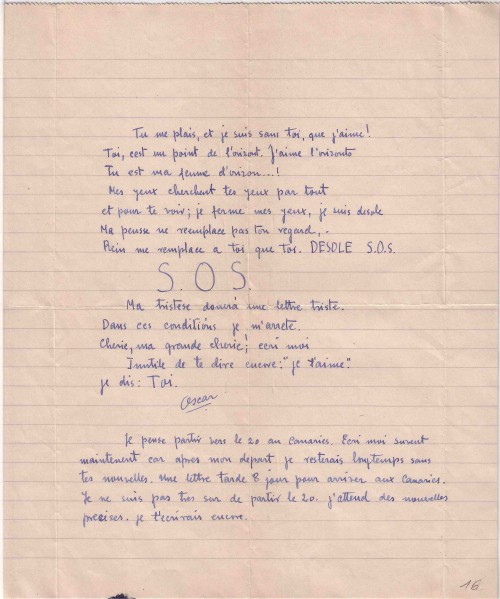 Tu me plais, et je suis sans toi, que j'aime!
Toi, cest un point de l'orizont. J'aime l'orizonte
Tu est ma femme d'orizon...!
Mes yeux cherchent tes yeux par tout
et pour te voir; je ferme mes yeux, je suis desole
Ma pensse ne reemplace pas ton regard,.
Rien me remplace a toi que toi. DESOLE S.O.S.
S.O.S.
Ma tristese donera une lettre triste.
Dans ces conditións je m'arrete.
Cherie, ma grande cherie! ecri moi
Inutile de te dire encore: "je t'aime".
je dis: Toi.
Oscar
Je pense partir vers le 20 au Canaries. Ecri moi suvent
maintenent car apres mon depart je resterais longtemps sans
tes nouvelles. Une lettre tarde 8 jour pour arriver aux Canaries.
Je ne suis pas tres sur de partir le 20. j'attend des nouvelles
precises. je t'ecrirais encore.
16